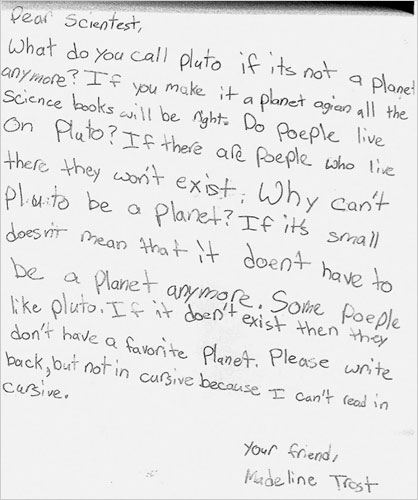 Dear Scientest,
What do you call pluto if its not a planet
anymore? If you make it a planet agian all the
Science books will be right. Do poeple live
on Pluto? If there are poeple who live
there they won't exist. Why can't
Pluto be a planet? If it's small
doesn't mean that it doen't have to
be a planet anymore. Some poeple
like pluto. If it doen't exist then they
don't have a favorite Planet. Please write
back, but not in cursive because I can't read in
cursive.
Your friend,
Madeline Trost